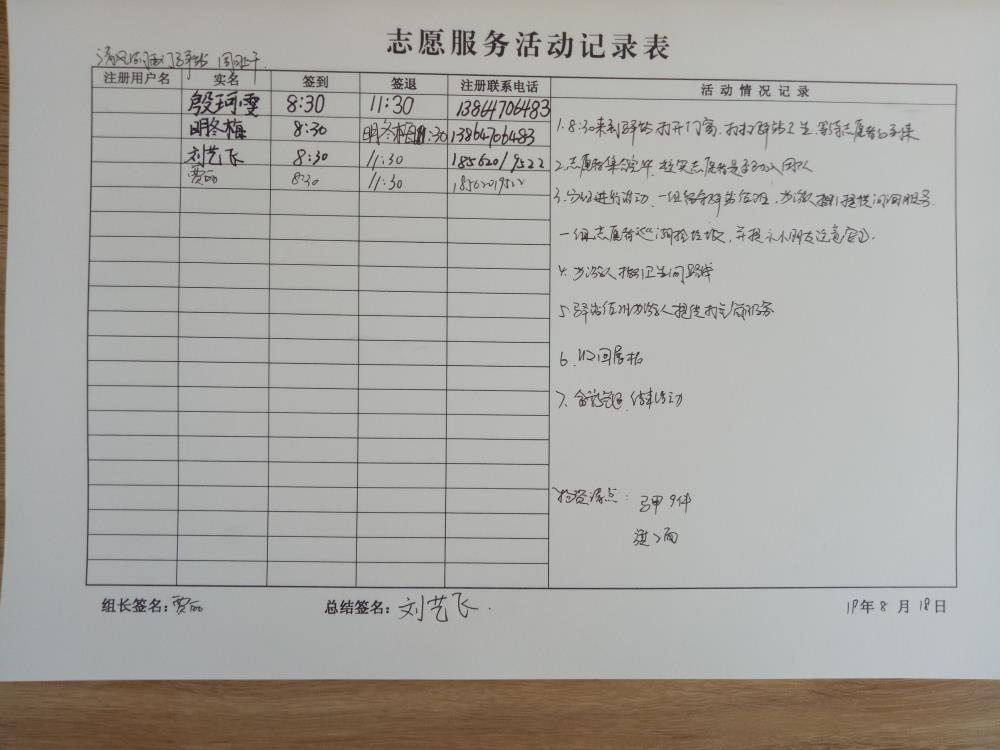 志愿服务活动记录表
注册用户名 实名 签到 签退 注册联系电话 活动情况记录
殷珂雯 8:30 11:30 13864706483
明冬梅 8:30 11:30 13864706483
刘艺飞 8:30 11:30 18562019522
贾丽 8:30 11:30 18562019522
1. 8:30来到驿站,打开门窗,打扫驿站卫生,等待志愿者的到来
2. 志愿者集合完毕 核实志愿者是否加入团队
3. 分组进行活动,一组留守驿站值班,为游人提供问询服务.
一组志愿者巡湖捡垃圾,并提示小朋友注意安全.
4. 为游人指引卫生间路线
5. 驿站值班为游人提供打气筒服务
6. 收回展板
7. 合影签退,结束活动
物资清点: 马甲9件
旗2面
组长签名: 贾丽 总结签名: 刘艺飞. 19年8月18日